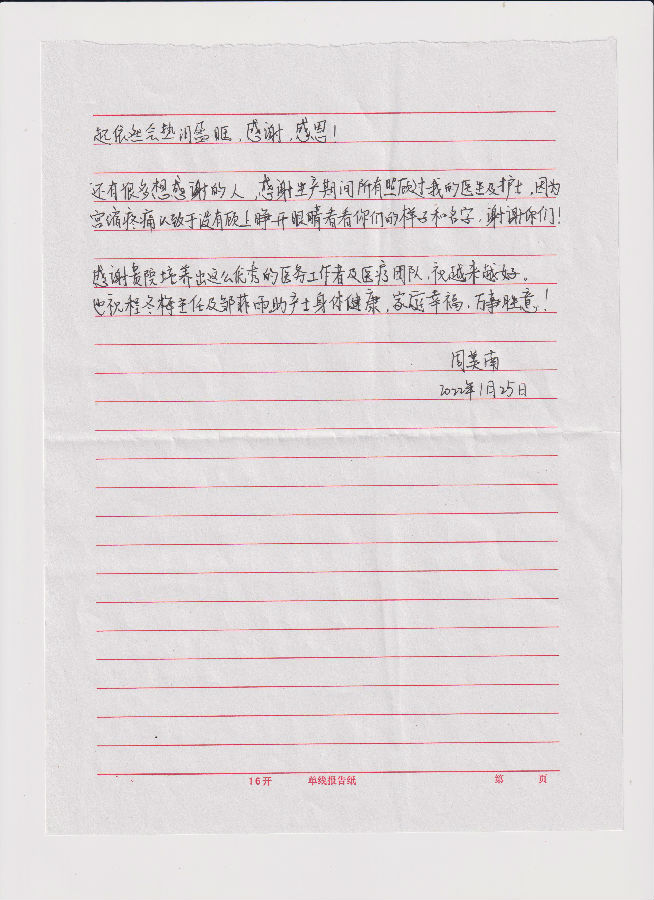 起依然会热泪盈眶，感谢，感恩！
还有很多想感谢的人，感谢生产期间所有照顾过我的医生及护士，因为
宫缩疼痛以致于没有顾上睁开眼睛看看你们的样子和名字，谢谢你们！
感谢贵院培养出这么优秀的医务工作者及医疗团队，祝越来越好。
也祝程冬梅主任及邹菲雨助产士身体健康，家庭幸福，万事胜意！
周美南
2022年1月25日
16开 单线报告纸 第 页